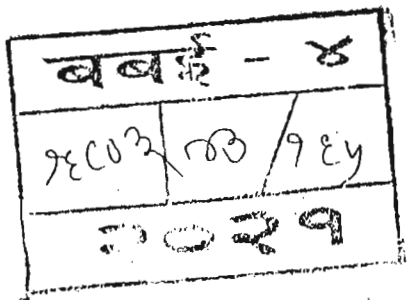 बबई - ४
१६८०३ / ७३ / १६५
२०२१